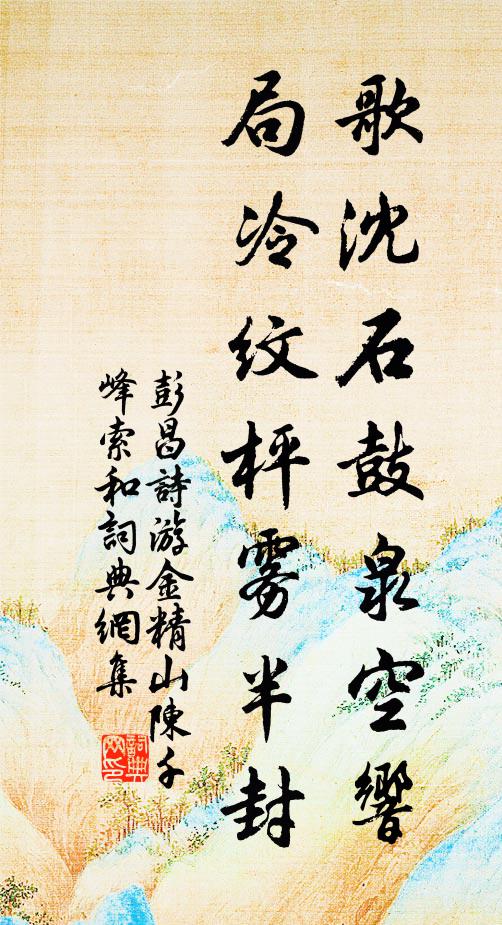 歌沈石鼓泉空響
局冷紋枰雾半封
彭昌詩游金精山陳千
峰索和詞典網集
詞典網印